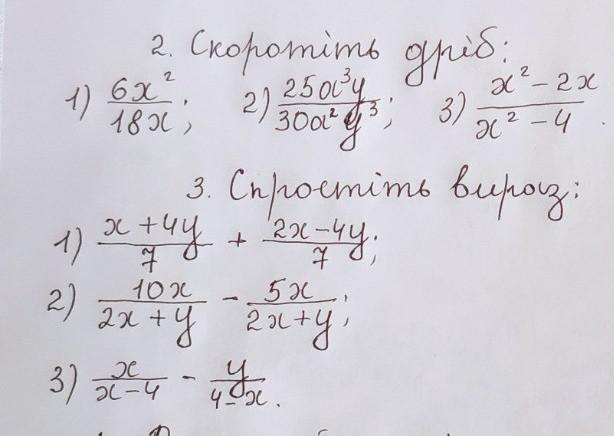 2. Скоротіть дріб:
1) 6x²/18x; 2) 25a³y/30a²y³; 3) x² - 2x/x² - 4.
3. Спростіть вираз:
1) x + 4y/7 + 2x - 4y/7;
2) 10x/2x + y - 5x/2x + y;
3) x/x - 4 - y/4 - x.